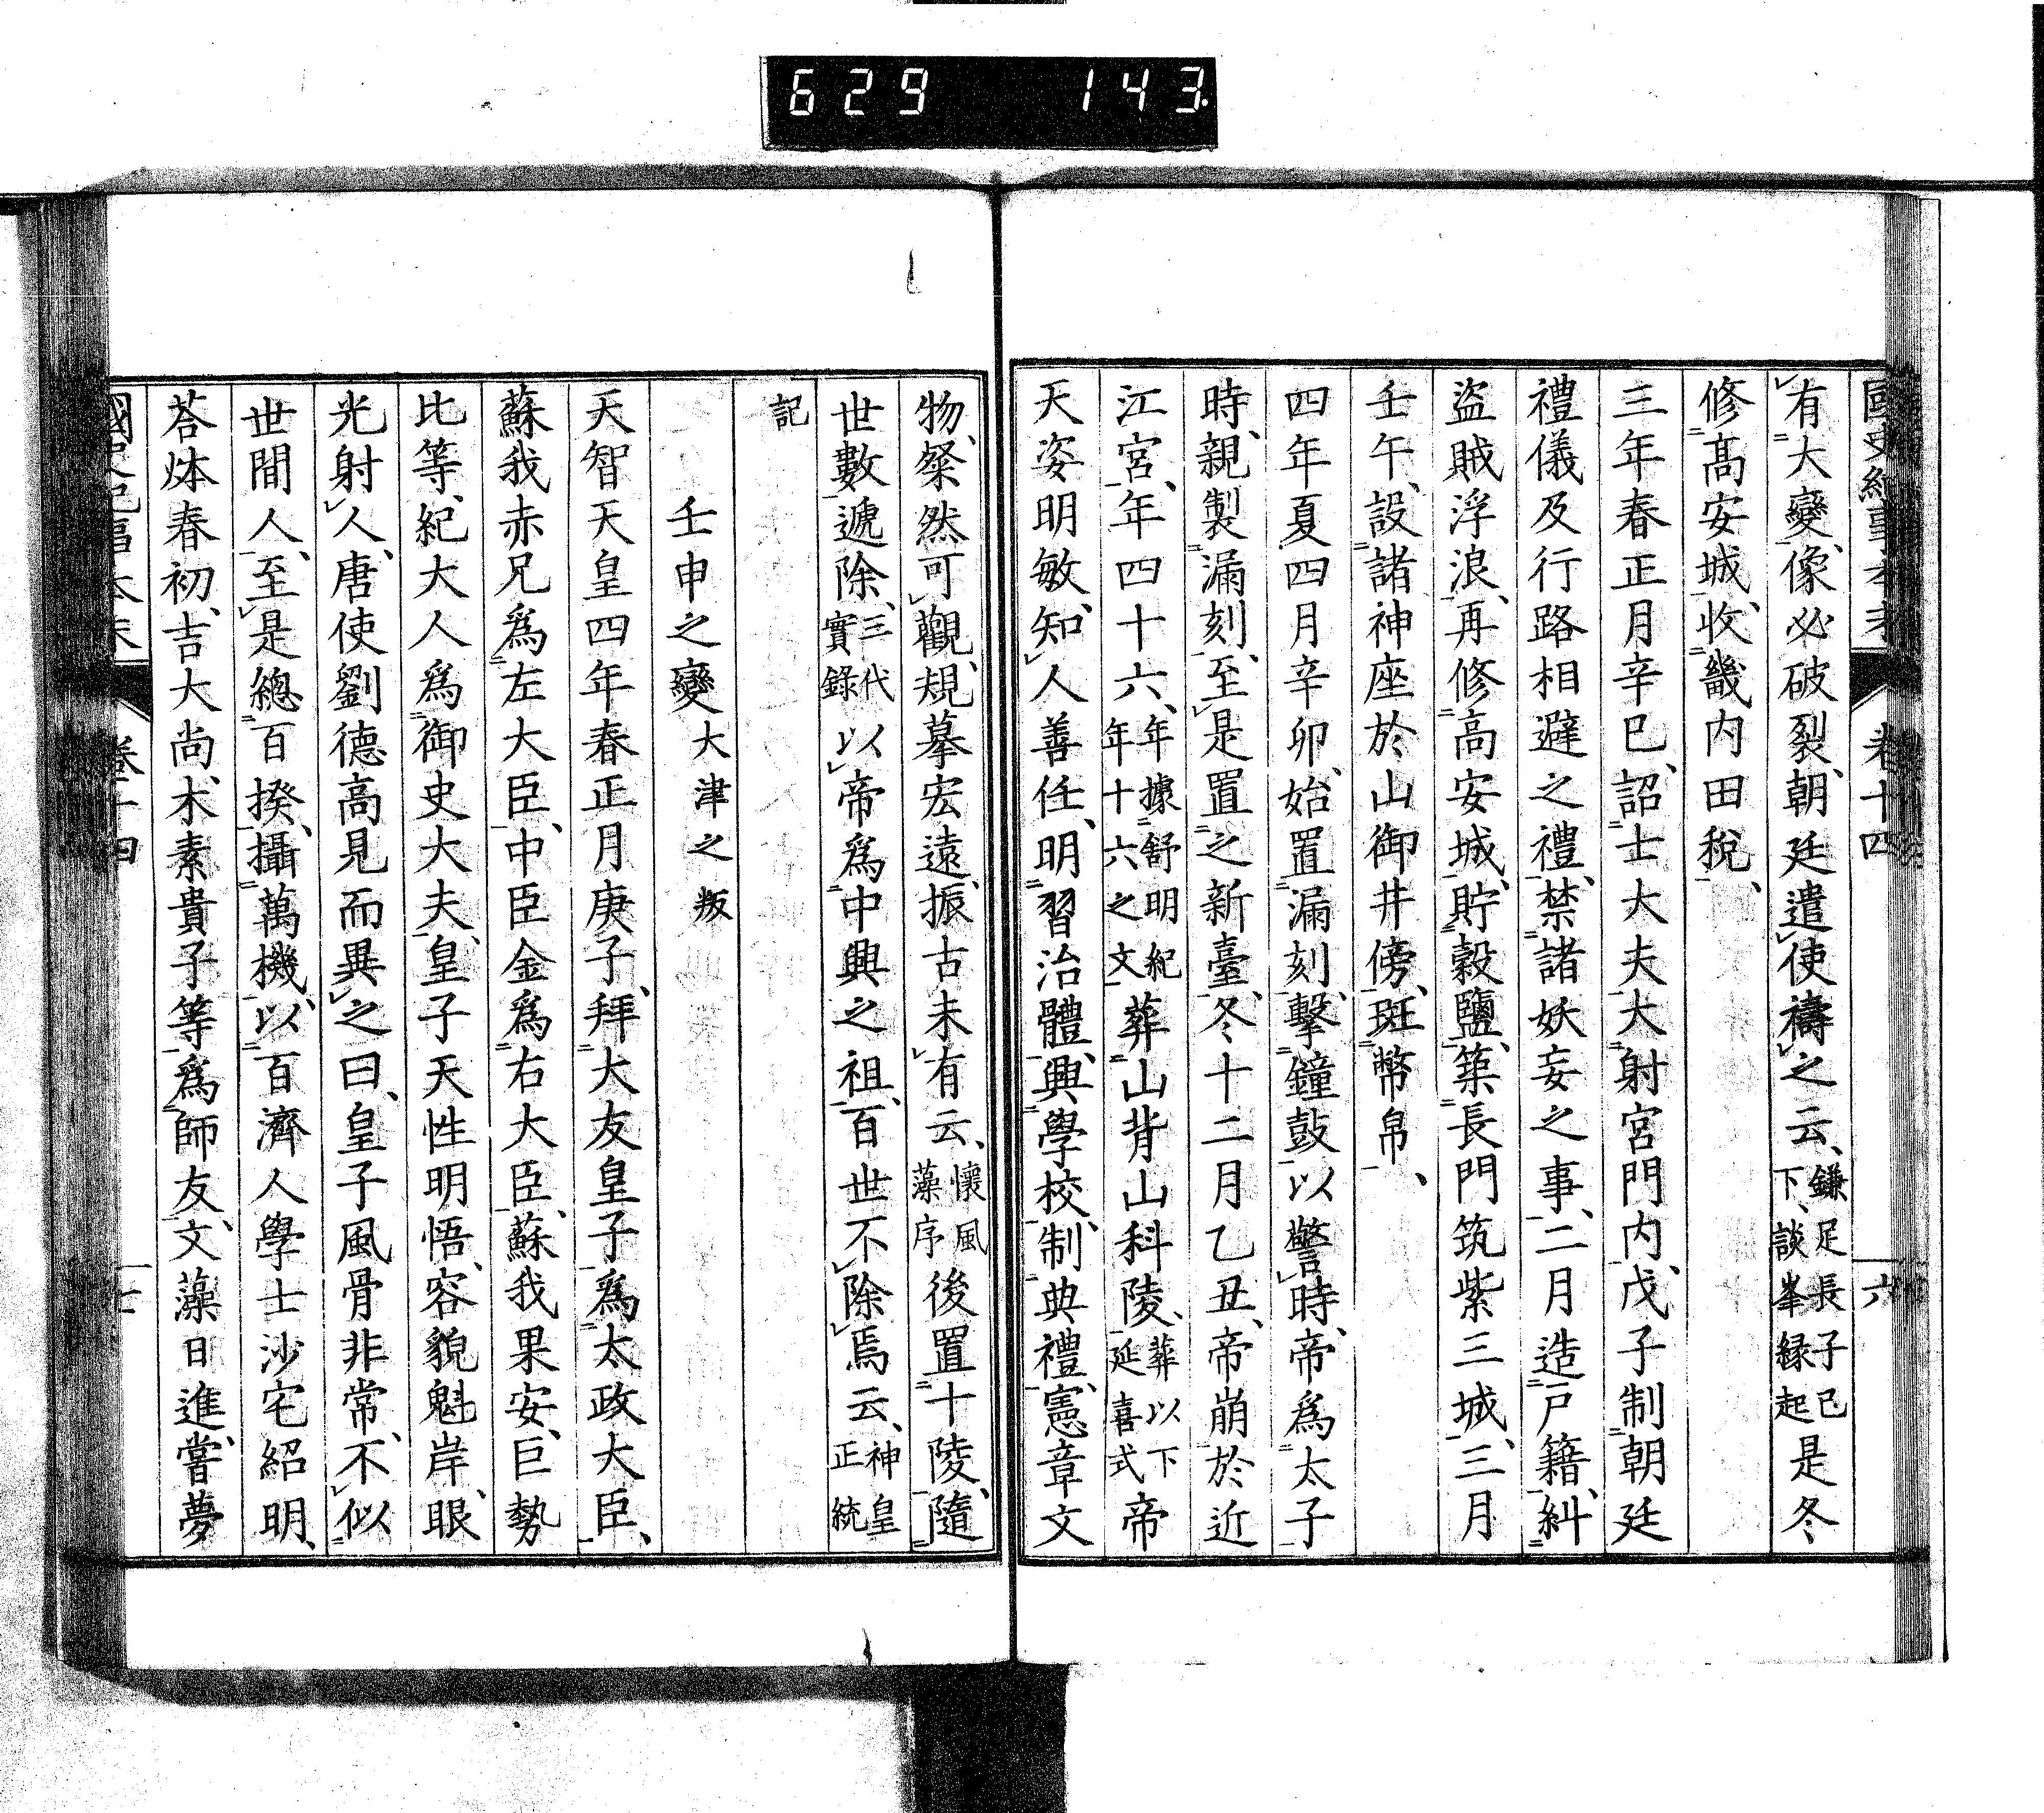 629 143
國史紀事本末 卷十四 六
有大變、像必破裂、朝廷遣使禱之云、鎌足長子已下、談峯縁起是冬
修髙安城、收畿内田稅、
三年春正月辛巳、詔士大夫大射宮門内、戊子制朝廷
禮儀及行路相避之禮、禁諸妖妄之事、二月造戸籍、糾
盜賊浮浪、再修高安城、貯穀鹽、築長門筑紫三城、三月
壬午、設諸神座於山御井傍、班幣帛、
四年夏四月辛卯、始置漏刻、擊鐘鼓以警時、帝爲太子
時、親製漏刻、至是置之新臺、冬十二月乙丑、帝崩於近
江宮、年四十六、年據舒明紀年十六之文葬山背山科陵、葬以下延喜式帝
天姿明敏、知人善任、明習治體、興學校、制典禮、憲章文
物、粲然可觀、規摹宏遠、振古未有云、懷風藻序後置十陵、隨
世數遞除、三代實錄以帝爲中興之祖、百世不除焉云、神皇正統
記
壬申之變大津之叛
天智天皇四年春正月庚子、拜大友皇子爲太政大臣、
蘇我赤兄爲左大臣、中臣金爲右大臣、蘇我果安、巨勢
比等、紀大人爲御史大夫、皇子天性明悟、容貌魁岸、眼
光射人、唐使劉德高見而異之曰、皇子風骨非常、不似
世間人、至是總百揆、攝萬機、以百濟人學士沙宅紹明、
荅㶱春初、吉大尚、木素貴子等爲師友、文藻日進、嘗夢
國史紀事本末 卷十四 七